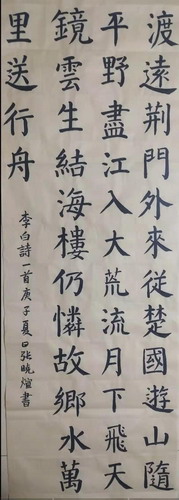 渡遠荆門外來從楚國遊山隨
平野盡江入大荒流月下飛天
鏡雲生結海樓仍憐故鄉水萬
里送行舟
李白詩一首庚子夏日張曉煊書